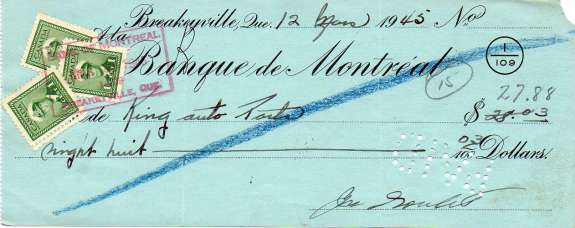 Breakeyville, Que. 12 Mars 1945 No
A la
Banque de Montréal
1
109
15
27.88
de King auto Parts $ 28.03
vingt huit 03/100 Dollars.
CANADA
CANADA
CANADA
DE MONTREAL
QUE.